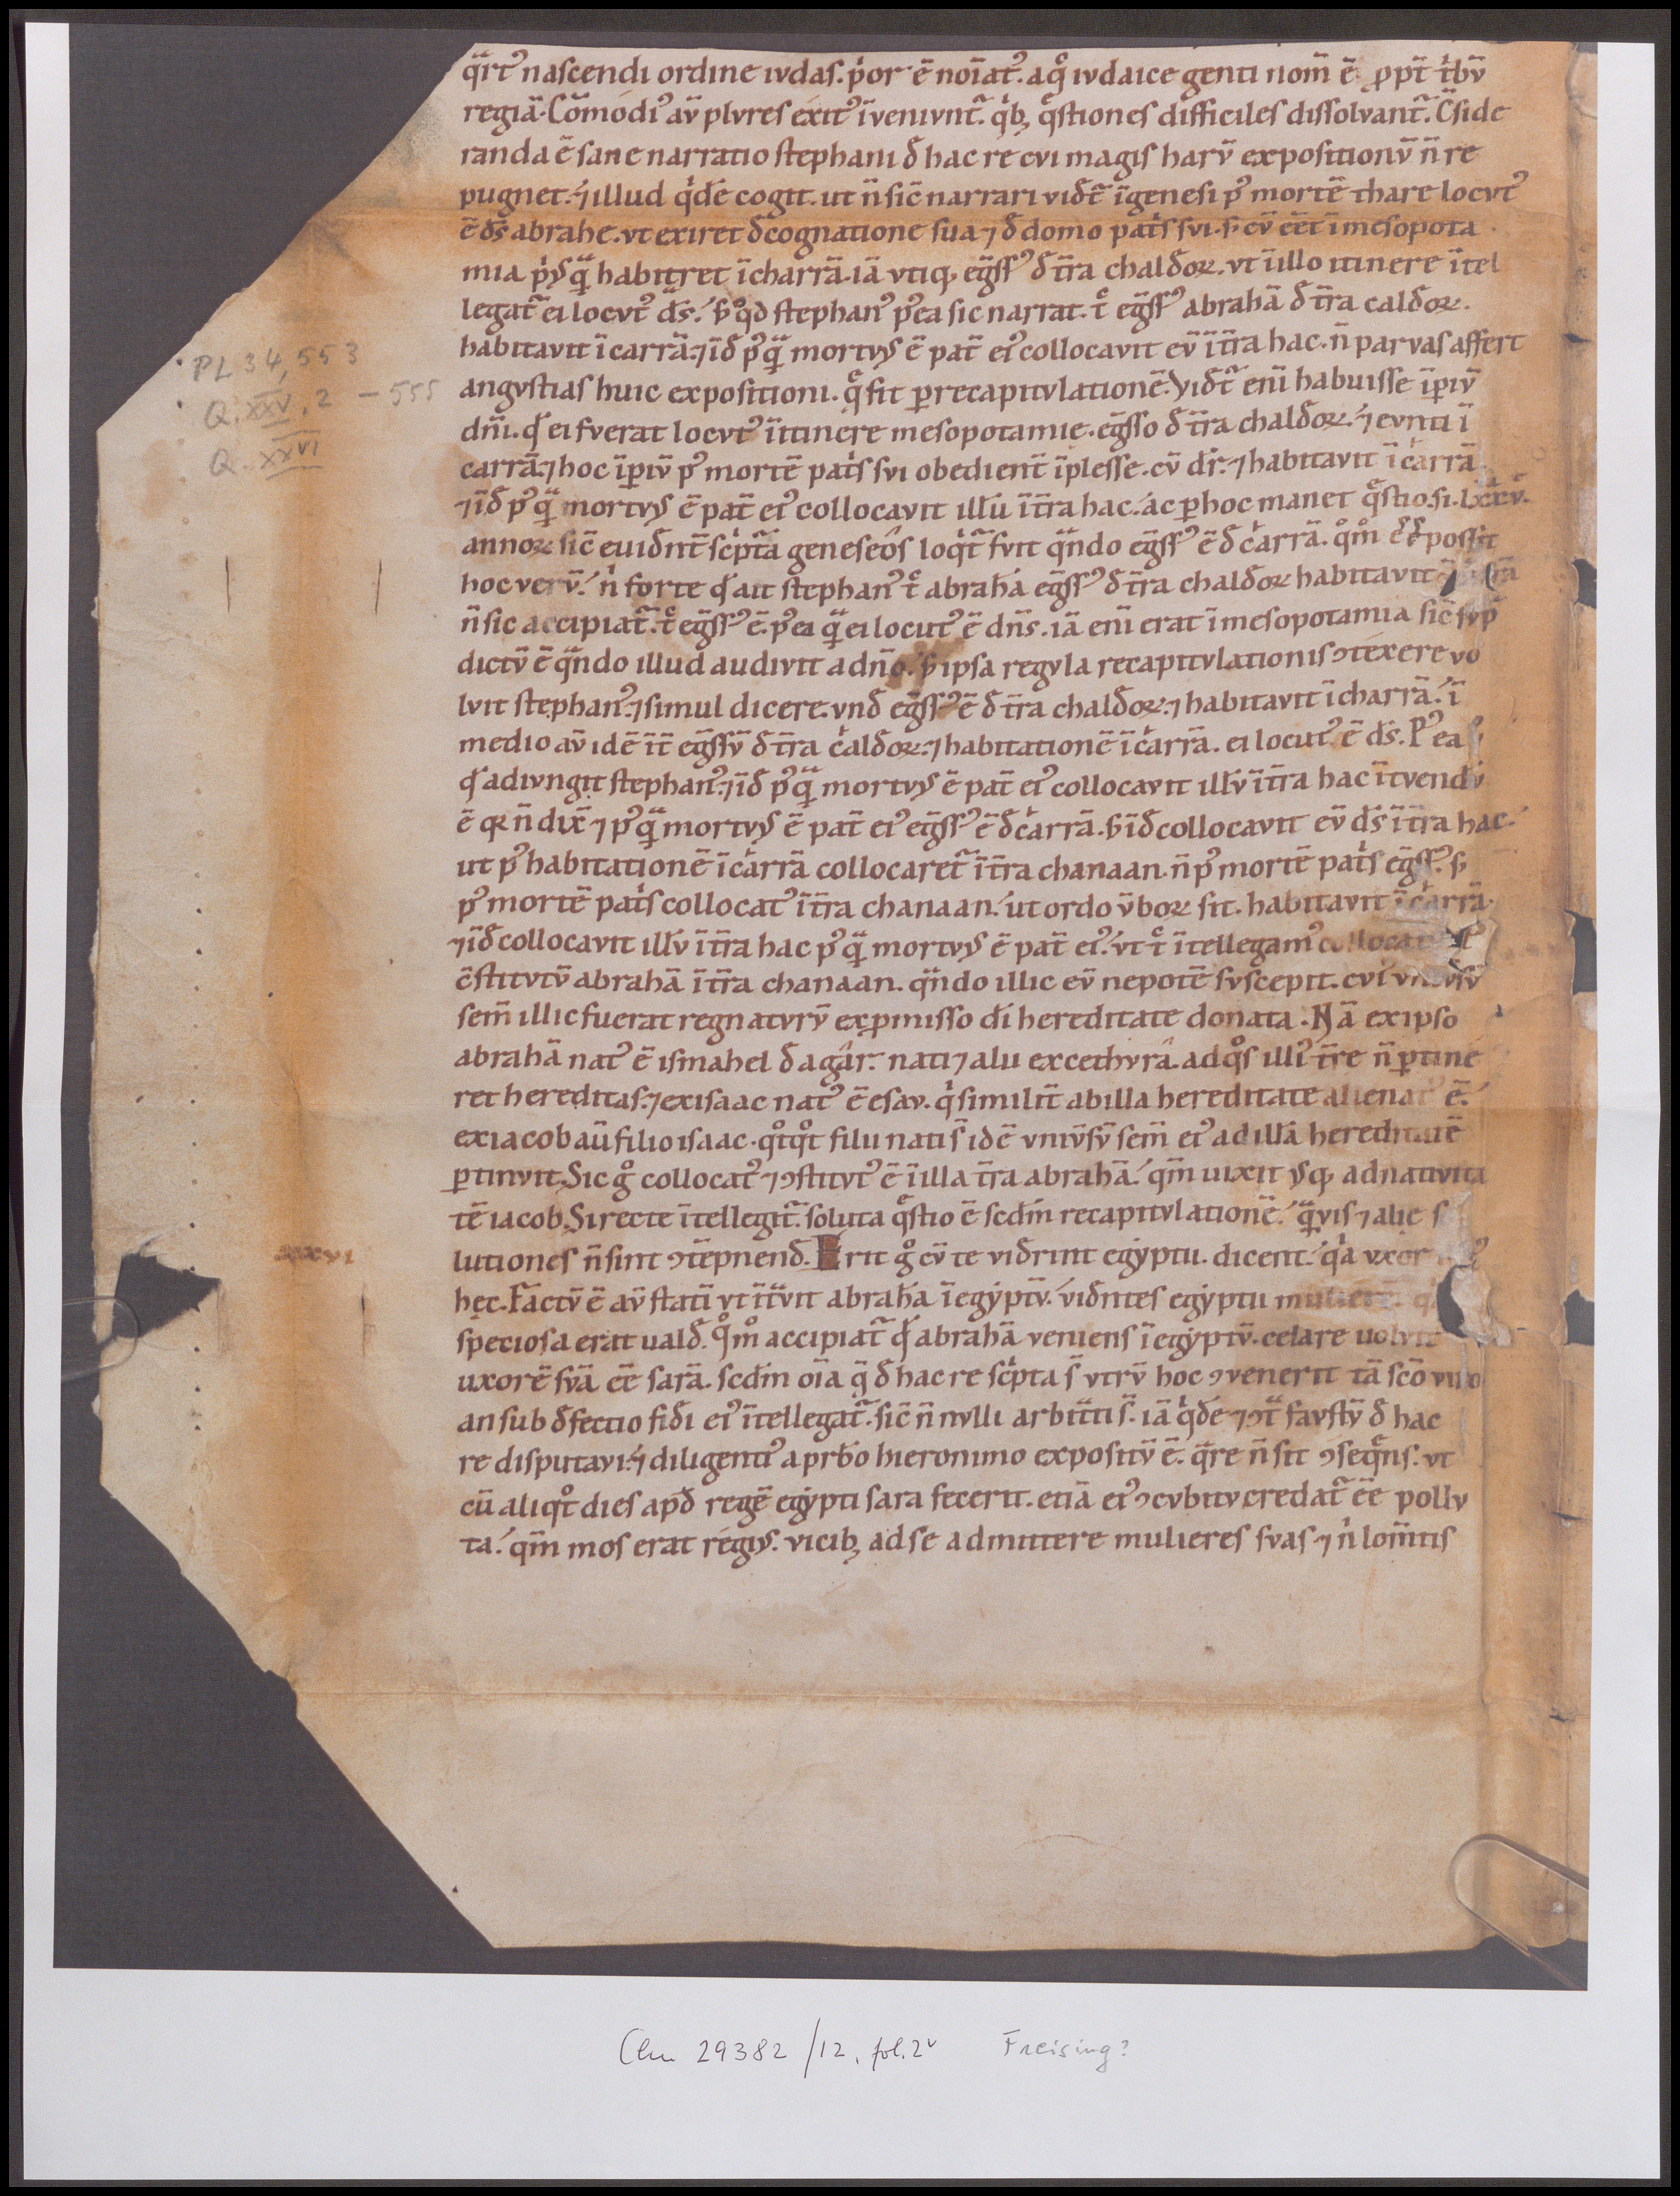 q̄rt᾽ nascendi ordine iudas. p̍or ē noīat᾽. aq̊ iudaice genti nom̄ ē ꝓpt̄ t̍bū
regiā. Cōmodi᾽ aū plures exit᾽ īveniunt᷑. q̍bꝫ q̊stiones difficiles dissolvant᷑. C̄side
randa ē sane narratio stephani đ hac re cui magis harū expositionū n̄ re
pugnet. ⁊ illud q̍dē cogit. ut n̄ sic̄ narrari vidt᷑ īgenesi p᾽ mortē thare locut᾽
ē dš abrahe. ut exiret đcognatione sua ⁊ đ domo pat̍s sui. s̄ cū eēt īmesopota
mia p̍usq̄ habitret īcharrā. iā utiqꝫ eḡss᾽ đ t̄ra chaldoꝝ. ut īillo itinere ītel
legat᷑ ei locut᾽ dš. s̄ qd̊ stephan᾽ p᾽ea sic narrat. t̊ eḡss᾽ abrahā đ t̄ra caldoꝝ.
habitavit īcarrā. ⁊ īđ p᾽q̄ mortuus ē pat̄ ei᾽ collocavit eū īt̄ra hac. n̄ parvas affert
angustias huic expositioni. q̊ fit ꝑrecapitulationē. Vidt᷑ enī habuisse īꝑiū
dn̄i. qđ ei fuerat locut᾽ īitinere mesopotamie. eḡsso đ t̄ra chaldoꝝ. ⁊ eunti ī
carrā. ⁊ hoc īꝑiū p᾽ mortē pat̍s sui obedient̄ īplesse. cū dr̄. ⁊ habitavit īcarrā.
⁊ īđ p᾽q̄ mortuus ē pat̄ ei᾽ collocavit illū īt̄ra hac. ac ꝑhoc manet q̊stio. si. lxxv.
annoꝝ sic̄ euidnt̄ sc̍pta geneseos loq̍t᷑ fuit q̄ndo eḡss᾽ ē đ carrā. q̊m̊ eē possit
hoc verū. n̍ forte qđ ait stephan᾽ t̊ abrahā eḡss᾽ đ t̄ra chaldoꝝ habitavit
n̄ sic accipiat᷑. t̊ eḡss᾽ ē. p᾽ea q̄ ei locut᾽ ē dn̄s. iā enī erat īmesopotamia sic̄ sup̄
dictū ē q̄ndo illud audivit adn̄o. s̄ ipsa regula recapitulationis ꝯtexere vo
luit stephan᾽. ⁊ simul dicere. unđ eḡss᾽ ē đ t̄ra chaldoꝝ. ⁊ habitavit īcharrā. ī
medio aū idē īt̄ eḡssū đ t̄ra caldoꝝ. ⁊ habitationē īcarrā. ei locut᾽ ē dš. P᾽ea
qđ adiungit stephan᾽. ⁊ īđ p᾽q̄ mortuus ē pat̄ ei᾽ collocavit illū īt̄ra hac ītuendū
ē qꝛ n̄ dix̄ ⁊ p᾽q̄ mortuus ē pat̄ ei᾽ eḡss᾽ ē đcarrā. s̄ īđ collocavit eū dš īt̄ra hac.
ut p᾽ habitationē īcarrā collocaret᷑ īt̄ra chanaan. n̄ p᾽ mortē pat̍s eḡss᾽. s̄
p᾽ mortē pat̍s collocat᾽ īt̄ra chanaan. ut ordo v̄boꝝ sit. habitavit īcarrā.
⁊ īđ collocavit illū īt̄ra hac p᾽q̄ mortuus ē pat̄ ei᾽. ut t̊ ītellegam᾽
c̄stitutū abrahā īt̄ra chanaan. q̄ndo illic eū nepotē suscepit. cui
sem̄ illic fuerat regnaturū ex ꝓmisso dī hereditate donata. Nā ex ipso
abrahā nat᾽ ē ismahel đ agar. nati ⁊ alii excethurā. adq̊s illi᾽ t̄re n̄ ꝑtine
ret hereditas. ⁊ exisaac nat᾽ ē esau. q̍ similit̄ abilla hereditate alienat᾽ ē.
exiacob aū filio isaac. q̊tq̊t filii nati s̄ idē univsū sem̄ ei᾽ adillā hereditatē
ꝑtinuit. Sic g̊ collocat᾽ ⁊ ꝯstitut᾽ ē īilla t̄ra abrahā. qm̄ uixit usqꝫ adnativita
tē iacob. Si recte ītellegit᷑. soluta q̊stio ē scđm recapitulationē. q̄vis ⁊ alie
lutiones n̄ sint ꝯtēpnenđ. Erit g̊ cū te vidrint egyptii. dicent. q̍a uxor
xxvi
hęc. Factū ē aū statī ut īt̄vit abrahā īegyptū. vidntes egyptii
speciosa erat ualđ. q̊m̊ accipiat᷑ qđ abrahā veniens īegyptū. celare uoluit
uxorē suā eē sarā. scđm oīa q̄ đ hac re sc̍pta s̄ utrū hoc ꝯvenerit tā sc̄o viro
an sub đfectio fidi ei᾽ ītellegat᷑. sic̄ n̄ nulli arbit̄ti s̄. iā q̍dē ⁊ ꝯt̄ faustū đ hac
re disputavi. ⁊ diligenti᾽ aprb̄o hieronimo expositū ē. q̄re n̄ sit ꝯseq̊ns. ut
cū aliq̊t dies apđ regē egypti sara fecerit. etiā ei᾽ ꝯcubitu credat᷑ eē pollu
ta. qm̄ mos erat regiꝰ. vicibꝫ adse admittere mulieres suas ⁊ n̍ lom̄tis
PL 34,553 - 555
Q. XXV, 2
Q. XXVI
Clm 29382/12, fol. 2v Freising?